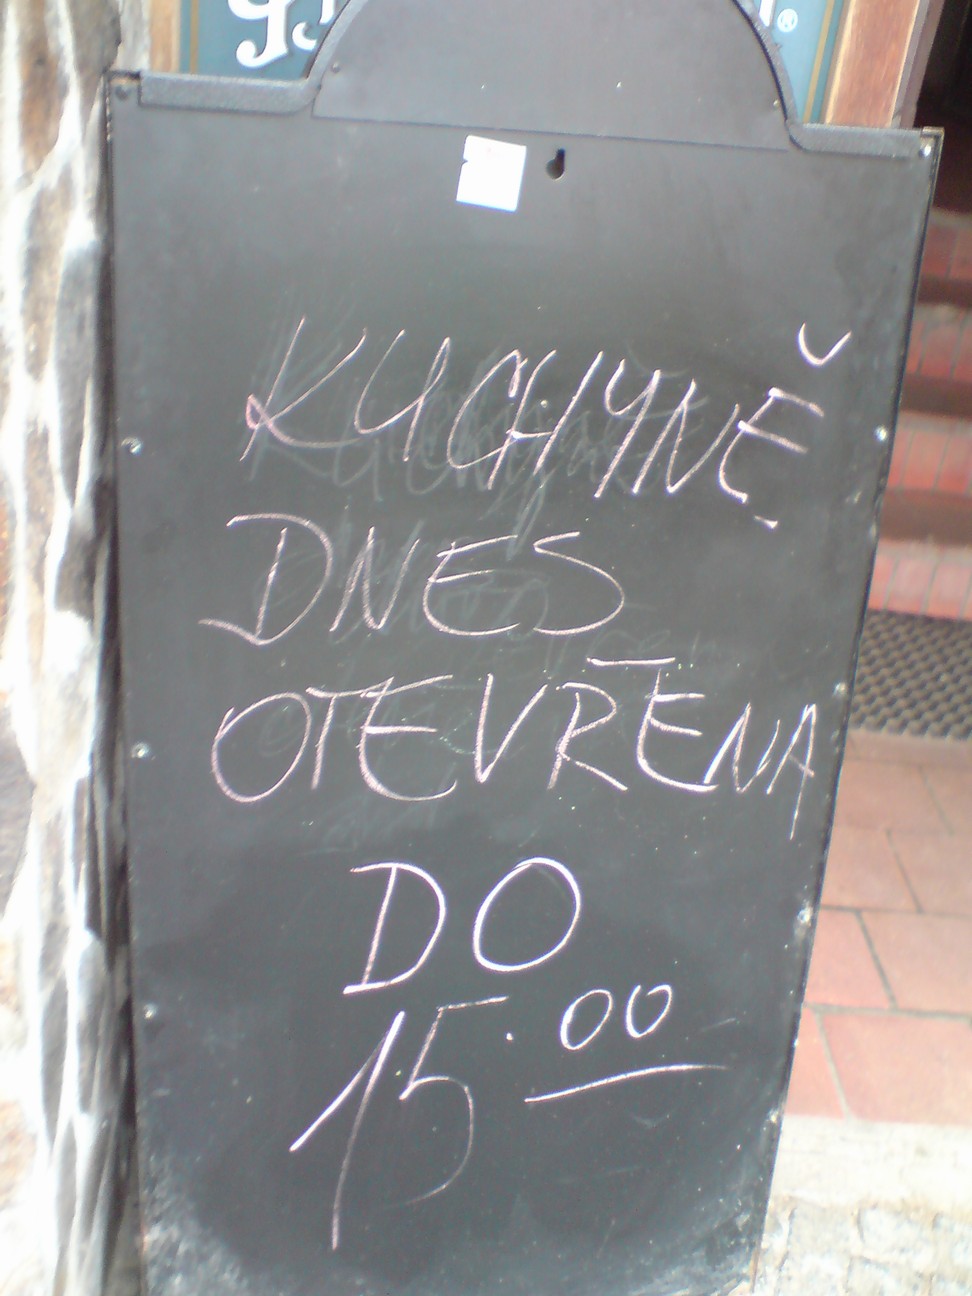 KUCHYNĚ
DNES
OTEVŘENA
DO
15.00